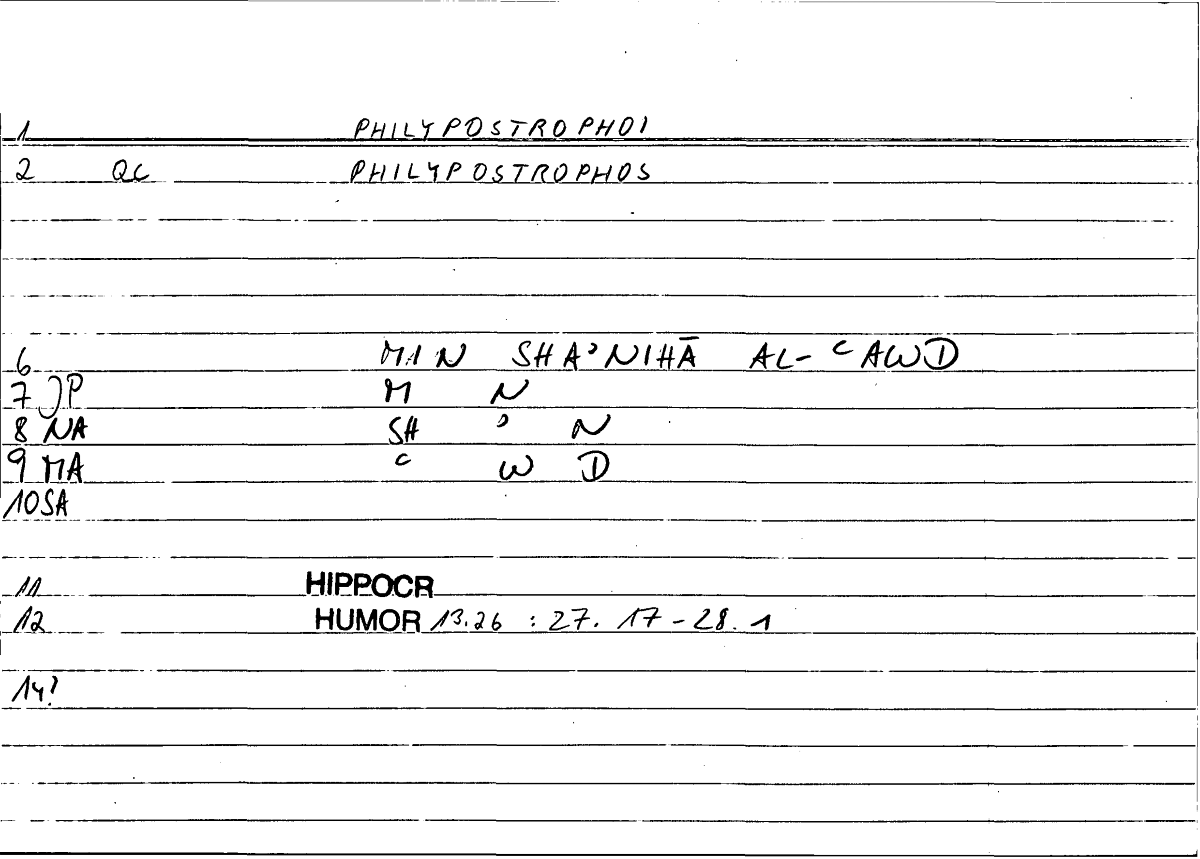 1 PHILYPOSTROPHOI
2 QC PHILYPOSTROPHOS
6 MIN SHAʾNIHĀ AL-ʿAWD
7 JP M N
8 NA SH ʾ N
9 MA ʿ W D
10 SA
11 HIPPOCR
12 HUMOR 13.26 : 27. 17-28. 1
14?